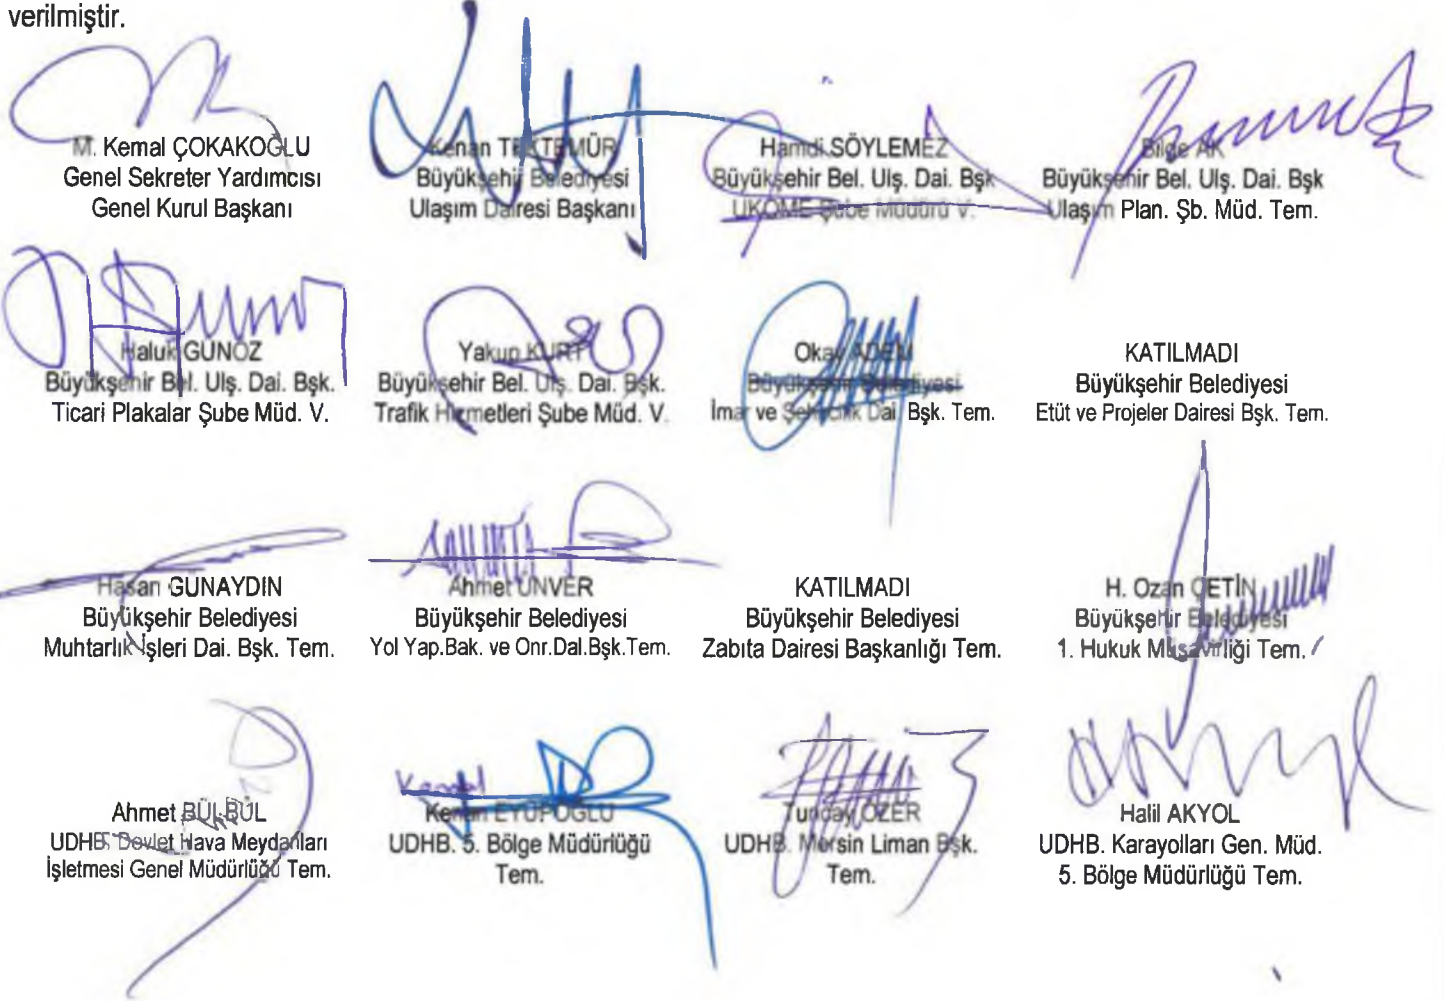 verilmiştir.
M. Kemal ÇOKAKOĞLU
Genel Sekreter Yardımcısı
Genel Kurul Başkanı
Kenan TEKTEMÜR
Büyükşehir Belediyesi
Ulaşım Dairesi Başkanı
Hamdi SÖYLEMEZ
Büyükşehir Bel. Ulş. Dai. Bşk
UKOME Şube Müdürü V.
Bilge AK
Büyükşehir Bel. Ulş. Dai. Bşk
Ulaşım Plan. Şb. Müd. Tem.
Haluk GÜNÖZ
Büyükşehir Bel. Ulş. Dai. Bşk.
Ticari Plakalar Şube Müd. V.
Yakup KURT
Büyükşehir Bel. Ulş. Dai. Bşk.
Trafik Hizmetleri Şube Müd. V.
Okay ADEM
Büyükşehir Belediyesi
İmar ve Şehircilik Dai. Bşk. Tem.
KATILMADI
Büyükşehir Belediyesi
Etüt ve Projeler Dairesi Bşk. Tem.
Hasan GÜNAYDIN
Büyükşehir Belediyesi
Muhtarlık İşleri Dai. Bşk. Tem.
Ahmet ÜNVER
Büyükşehir Belediyesi
Yol Yap.Bak. ve Onr.Dal.Bşk.Tem.
KATILMADI
Büyükşehir Belediyesi
Zabıta Dairesi Başkanlığı Tem.
H. Ozan ÇETİN
Büyükşehir Belediyesi
1. Hukuk Müşavirliği Tem.
Ahmet BÜLBÜL
UDHB. Devlet Hava Meydanları
İşletmesi Genel Müdürlüğü Tem.
Kenan EYÜPOĞLU
UDHB. 5. Bölge Müdürlüğü
Tem.
Tuncay ÖZER
UDHB. Mersin Liman Bşk.
Tem.
Halil AKYOL
UDHB. Karayolları Gen. Müd.
5. Bölge Müdürlüğü Tem.